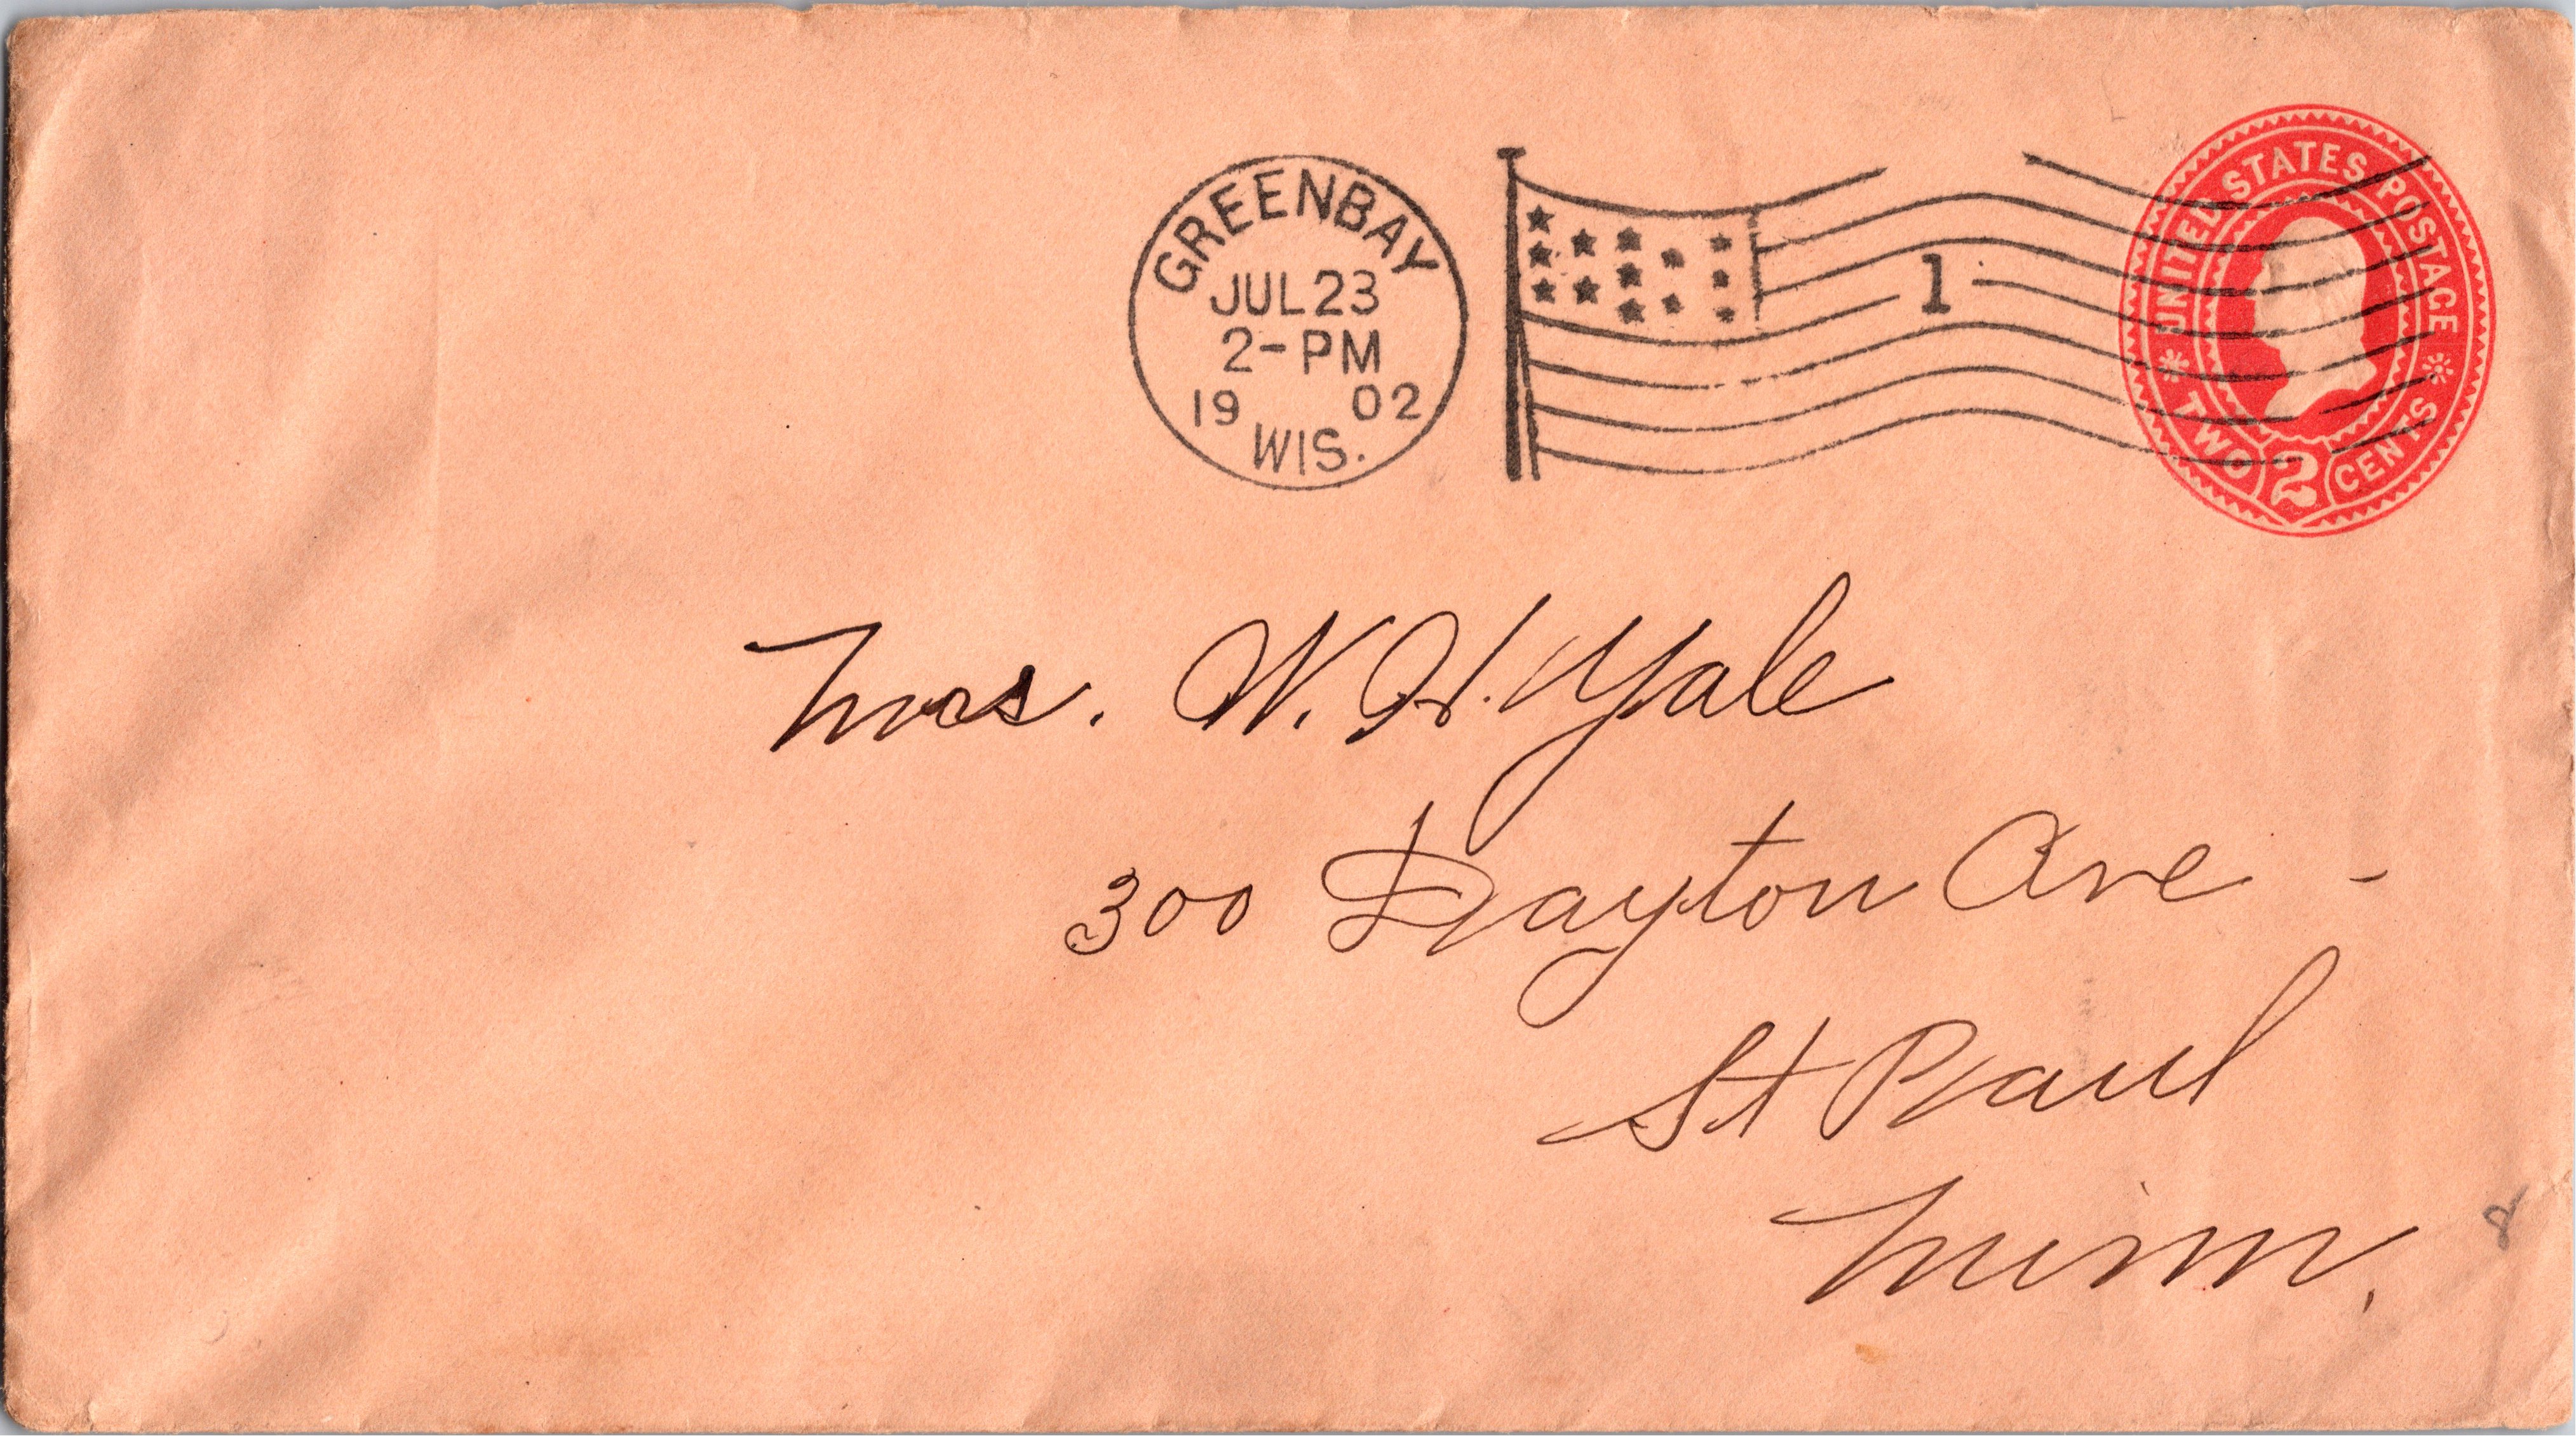 GREENBAY
JUL 23
2-PM
19 02
WIS.
1
UNITED STATES POSTAGE
TWO 2 CENTS
Mrs. W. H. Yale
300 Dayton Ave -
St Paul
Minn.